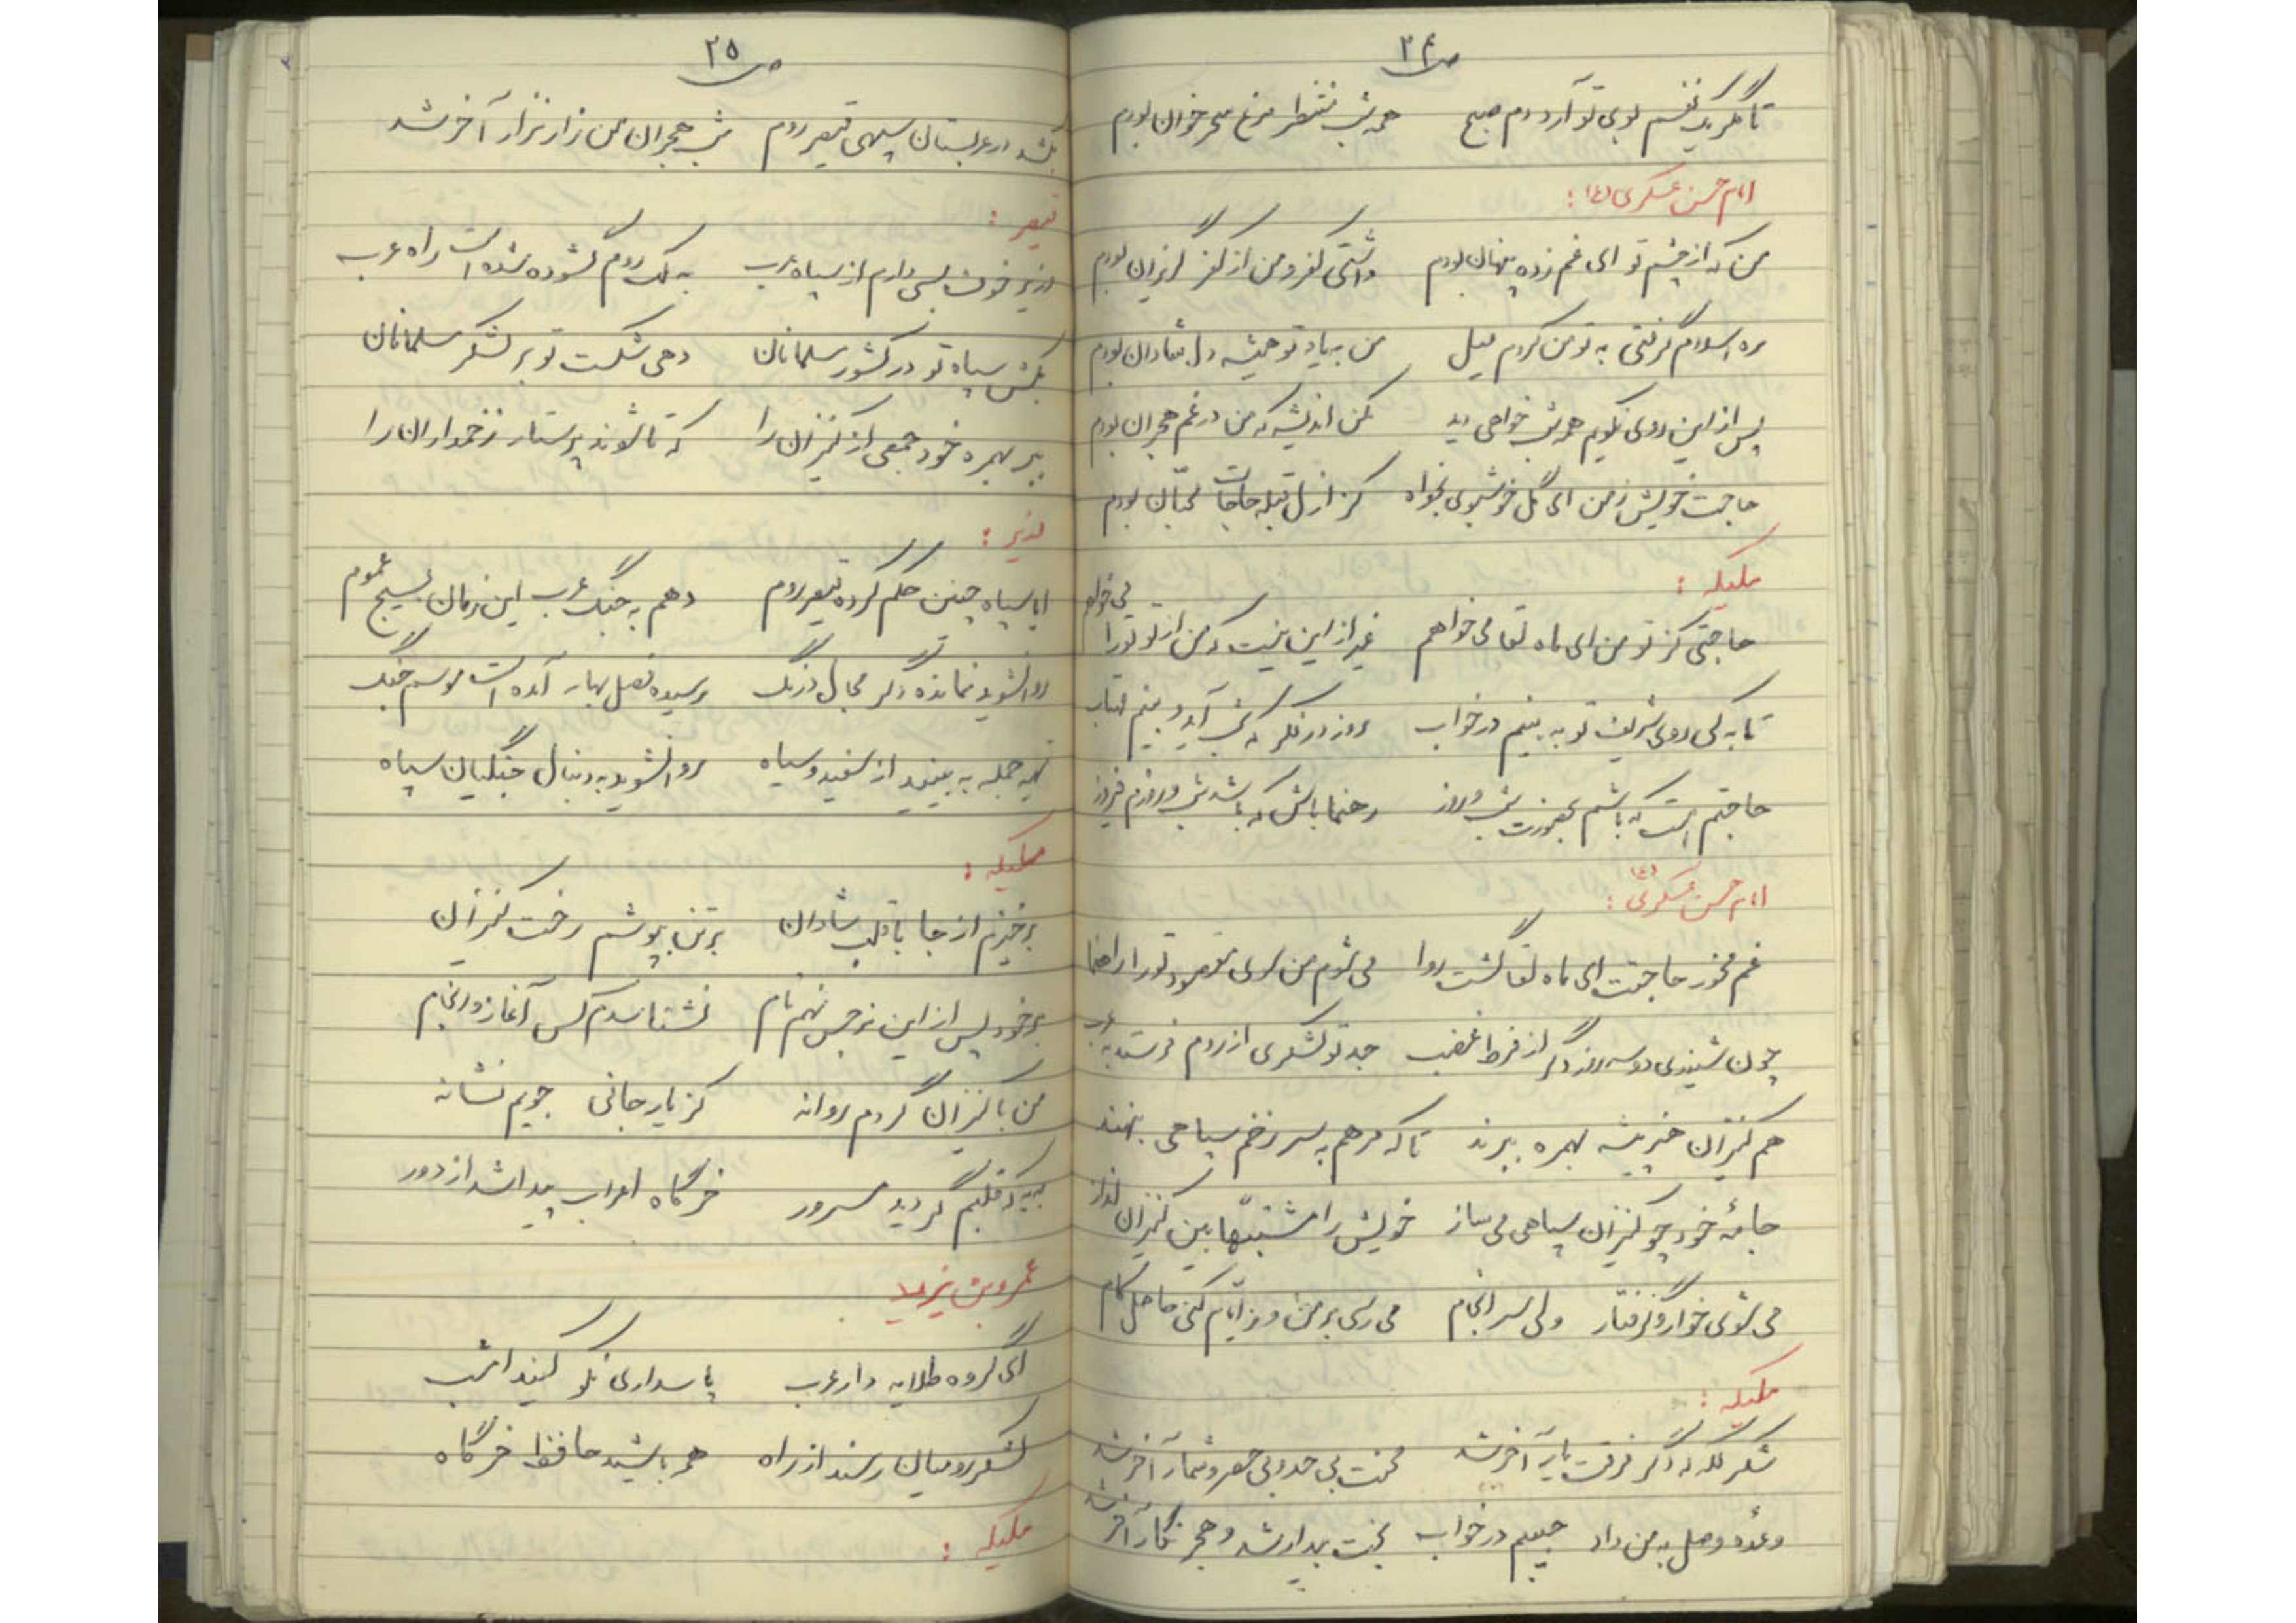 ص ۲۴
تا مگر یک نفسم بوی تو آرد دم صبح همه شب منتظر مرغ سحر خوان بودم
امام حسن عسکری (ع) :
من که از چشم تو ای غم زده پنهان بودم داشتی کفر و من از کفر گریزان بودم
ره اسلام گرفتی به تو من کردم میل من به یاد تو همیشه دل شادان بودم
پس از این روی نکویم همه شب خواهی دید مکن اندیشه که من در غم هجران بودم
حاجت خویش ز من ای گل خوشبوی بخواه کز ازل قبله حاجات محبّان بودم
ملیکه :
حاجتی کز تو من ای ماه لقا می خواهم غیر از این نیست که من از تو تو را می خواهم
تا به کی روی شریف تو به بینم در خواب روز در فکر که شب آید و بینم مهتاب
حاجتم است که باشم بحضورت شب و روز رهنما باش که باشد شب و روزم فیروز
امام حسن عسکری (ع) :
غم مخور حاجتت ای ماه لقا گشت روا می شوم من سوی مقصود تو را راهنما
چون شنیدی دو سه روز دگر از فرط غضب جد تو لشکری از روم فرستد به عرب
هم کنیزان خبر پیشه بهمره ببرند تا که مرهم به سر زخم سپاهی بنهند
جامهٔ خود چو کنیزان سپاهی می ساز خویش را مشتبهاً بین کنیزان انداز
می شوی خوار و گرفتار ولی سر انجام می رسی بر من و ز ایّام کنی حاصل کام
ملیکه :
شکر لله که دگر فرقت یار آخر شد محنت بی حد و بی حصر و شمار آخر شد
وعده وصل به من داد حبیبم در خواب بخت بیدار شد و هجر نگار آخر شد
ص ۲۵
بکشد در عربستان سپهی قیصر روم شب هجران من زار نزار آخر شد
قیصر :
وزیر خوف بسی دارم از سپاه عرب به ملک روم گشوده شده است راه عرب
بکش سپاه تو در کشور مسلمانان دهی شکست تو بر لشکر مسلمانان
ببر بهمره خود جمعی از کنیزان را که تا شوند پرستار زخمداران را
وزیر :
ایا سپاه چنین حکم کرده قیصر روم دهم به جنگ عرب این زمان بسیج عموم
روان شوید نمانده دگر مجال درنگ رسیده فصل بهار آمده است موسم جنگ
تهیه جمله به بینید از سفید و سیاه روان شوید به دنبال جنگیان سپاه
ملیکه :
برخیزم از جا با قلب شادان بر تن بپوشم رخت کنیزان
بر خود پس از این نرجس نهم نام نشناسدم کس آغاز و انجام
من با کنیزان گردم روانه کز یار جانی جویم نشانه
به به که قلبم گردید مسرور خرگاه اعراب پیدا شد از دور
عمرو بن یزید
ای گروه طلایه دار عرب پاسداری نکو کنید امشب
لشکر رومیان رسند از راه همه باشید حافظ خرگاه
ملیکه :